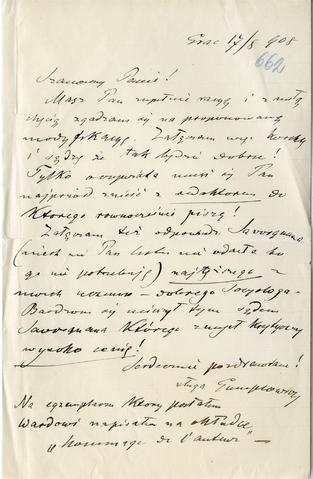 Graz 17/8 908
662
Szanowny Panie!
Masz Pan zupełnie racyę i z miłą
chęcią zgadzam się na proponowaną
modyfikacyę. Załączam więc
i sądzę że tak będzie dobrze!
Tylko musi się Pan
naprzód znieść z redaktorem do
którego równocześnie piszę!
Załączam też odpowiedź Savorgnana
(niech mi Pan listu nie odsyła bo
go nie potrzebuję) najtęższego z
moich uczniów – dobrego Socyologa –
Bardzom się ucieszył tym sądem
Savorgnana którego zmysł krytyczny
wysoko cenię!
Serdecznie pozdrawiam!
sługa Gumplowicz
Na egzemplarzu który posłałem
Wardowi napisałem na okładce
„hommage de l'auteur" –